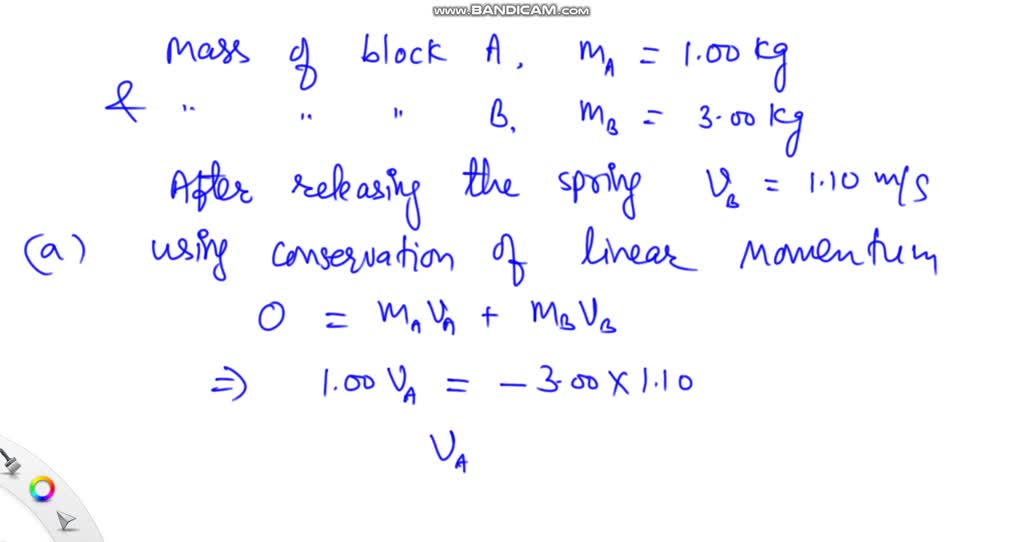 www.BANDICAM.com
Mass of block A, m_A = 1.00 kg
& " " " B, m_B = 3.00 kg
After releasing the spring V_B = 1.10 m/s
(a) using conservation of linear momentum
0 = m_A V_A + m_B V_B
⇒ 1.00 V_A = - 3.00 × 1.10
V_A